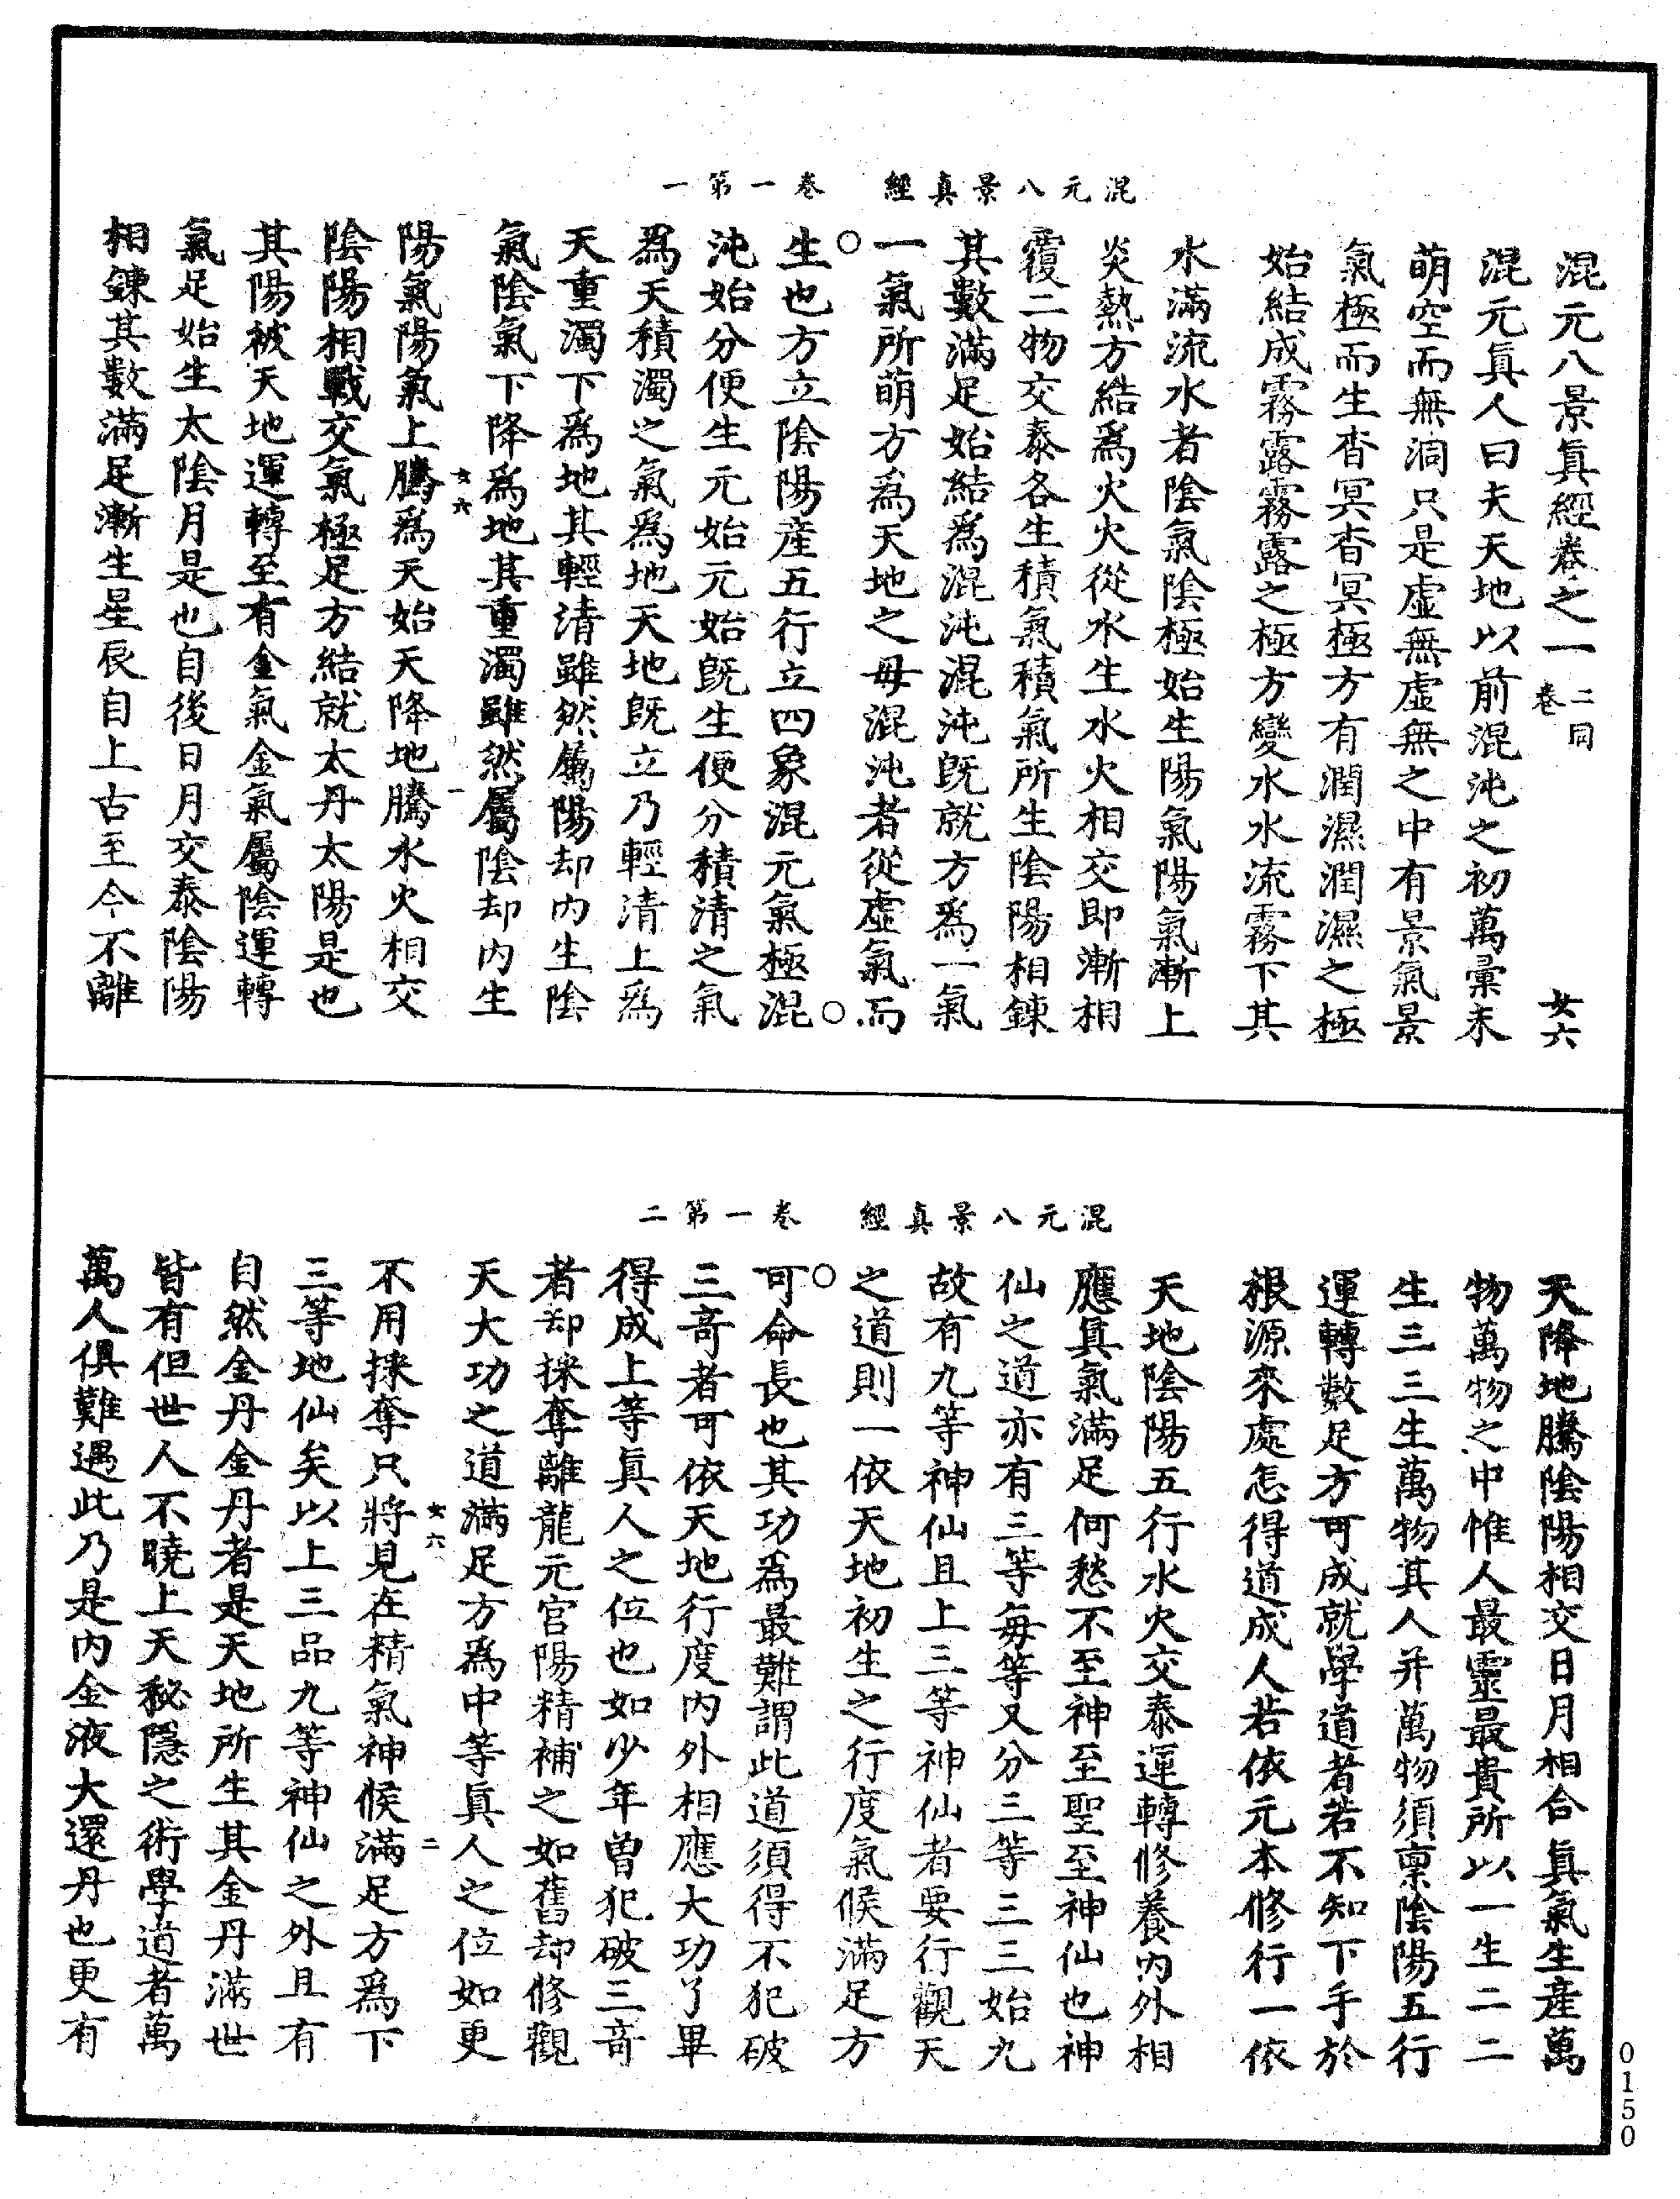 混元八景真經　卷一第一
混元八景眞經卷之一　二卷同　女六
混元眞人曰夫天地以前混沌之初萬彙未
萌空而無洞只是虛無虛無之中有景氣景
氣極而生杳冥杳冥極方有潤濕潤濕之極
始結成霧露霧露之極方變水水流霧下其
水滿流水者陰氣陰極始生陽氣陽氣漸上
炎熱方結爲火火從水生水火相交即漸相
覆二物交泰各生積氣積氣所生陰陽相鍊
其數滿足始結爲混沌混沌既就方爲一氣
一氣所萌方爲天地之母混沌者從虛氣而
○生也方立陰陽産五行立四象混元氣極混○
沌始分便生元始元始既生便分積清之氣
爲天積濁之氣爲地天地既立乃輕清上爲
天重濁下爲地其輕清雖然屬陽却内生陰
氣陰氣下降爲地其重濁雖然屬陰却内生
女六　一
陽氣陽氣上騰爲天始天降地騰水火相交
陰陽相戰交氣極足方結就太丹太陽是也
其陽被天地運轉至有金氣金氣屬陰運轉
氣足始生太陰月是也自後日月交泰陰陽
相鍊其數滿足漸生星辰自上古至今不離
混元八景真經　卷一第二
天降地騰陰陽相交日月相合眞氣生産萬
物萬物之中惟人最靈最貴所以一生二二
生三三生萬物其人并萬物須禀陰陽五行
運轉數足方可成就學道者若不知下手於
根源來處怎得道成人若依元本修行一依
天地陰陽五行水火交泰運轉修養内外相
應眞氣滿足何愁不至神至聖至神仙也神
仙之道亦有三等每等又分三等三三始九
故有九等神仙且上三等神仙者要行觀天
之道則一依天地初生之行度氣候滿足方
○可命長也其功爲最難謂此道須得不犯破
三竒者可依天地行度内外相應大功了畢
得成上等眞人之位也如少年曾犯破三竒
者却採奪離龍元宫陽精補之如舊却修觀
天大功之道滿足方爲中等眞人之位如更
女六　二
不用採奪只將見在精氣神候滿足方爲下
三等地仙矣以上三品九等神仙之外且有
自然金丹金丹者是天地所生其金丹滿世
皆有但世人不曉上天秘隱之術學道者萬
萬人俱難遇此乃是内金液大還丹也更有
0150